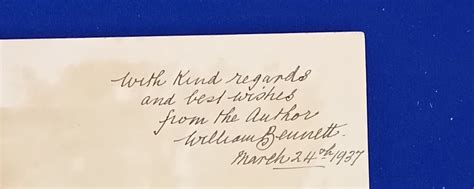 With Kind regards
and best wishes
from the Author
William Bennett.
March 24th 1937